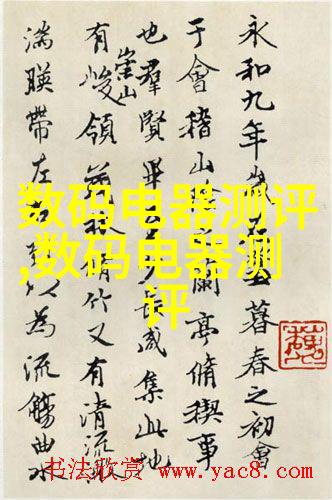 永和九年歲暮春之初會
于會稽山蘭亭脩禊事
也羣賢畢咸集此地
有崇山峻領茂林脩竹又有清流激
湍暎帶左右以為流觴曲水
数码电器测评
,数码电器测
评
书法欣赏 www.yac8.com